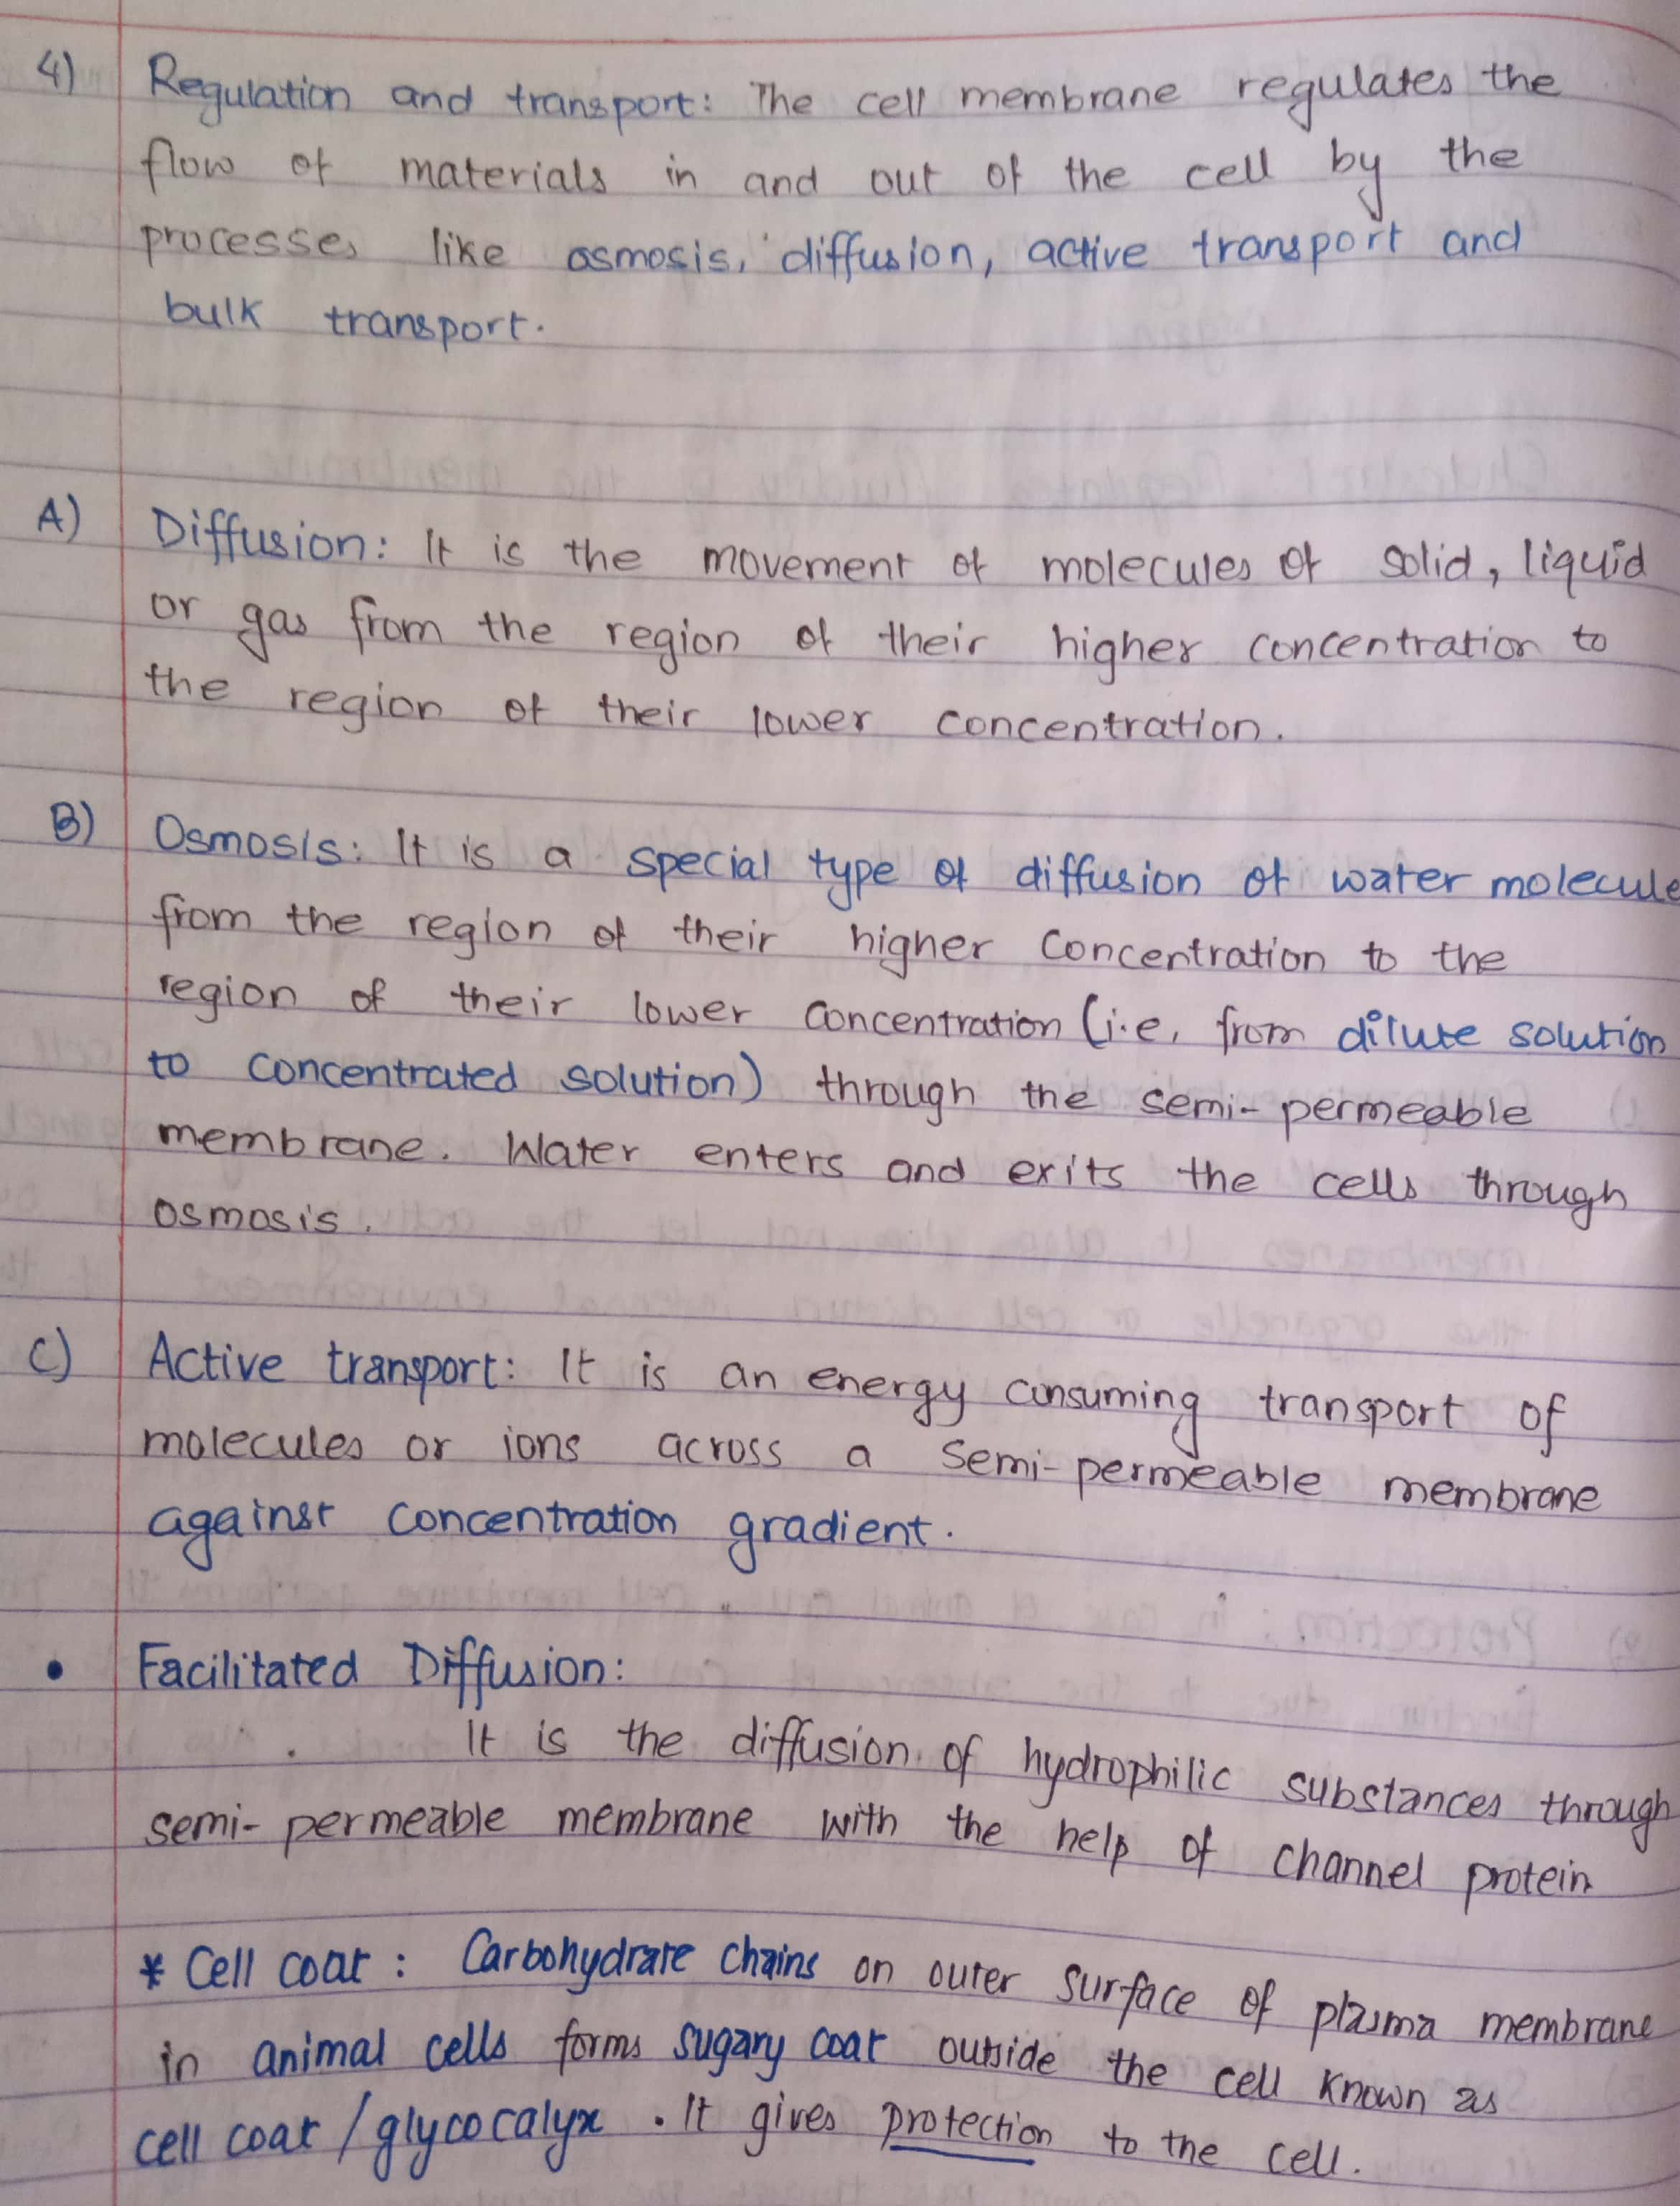 4) Regulation and transport: The cell membrane regulates the
flow of materials in and out of the cell by the
processes like osmosis, diffusion, active transport and
bulk transport.
A) Diffusion: It is the movement of molecules of solid, liquid
or gas from the region of their higher concentration to
the region of their lower concentration.
B) Osmosis: It is a special type of diffusion of water molecule
from the region of their higher concentration to the
region of their lower concentration (i.e, from dilute solution
to concentrated solution) through the semi-permeable
membrane. Water enters and exits the cells through
osmosis.
C) Active transport: It is an energy consuming transport of
molecules or ions across a semi-permeable membrane
against concentration gradient.
• Facilitated Diffusion:
It is the diffusion of hydrophilic substances through
semi-permeable membrane with the help of channel protein
* Cell coat: Carbohydrate chains on outer surface of plasma membrane
in animal cells forms sugary coat outside the cell known as
cell coat / glycocalyx. It gives protection to the cell.